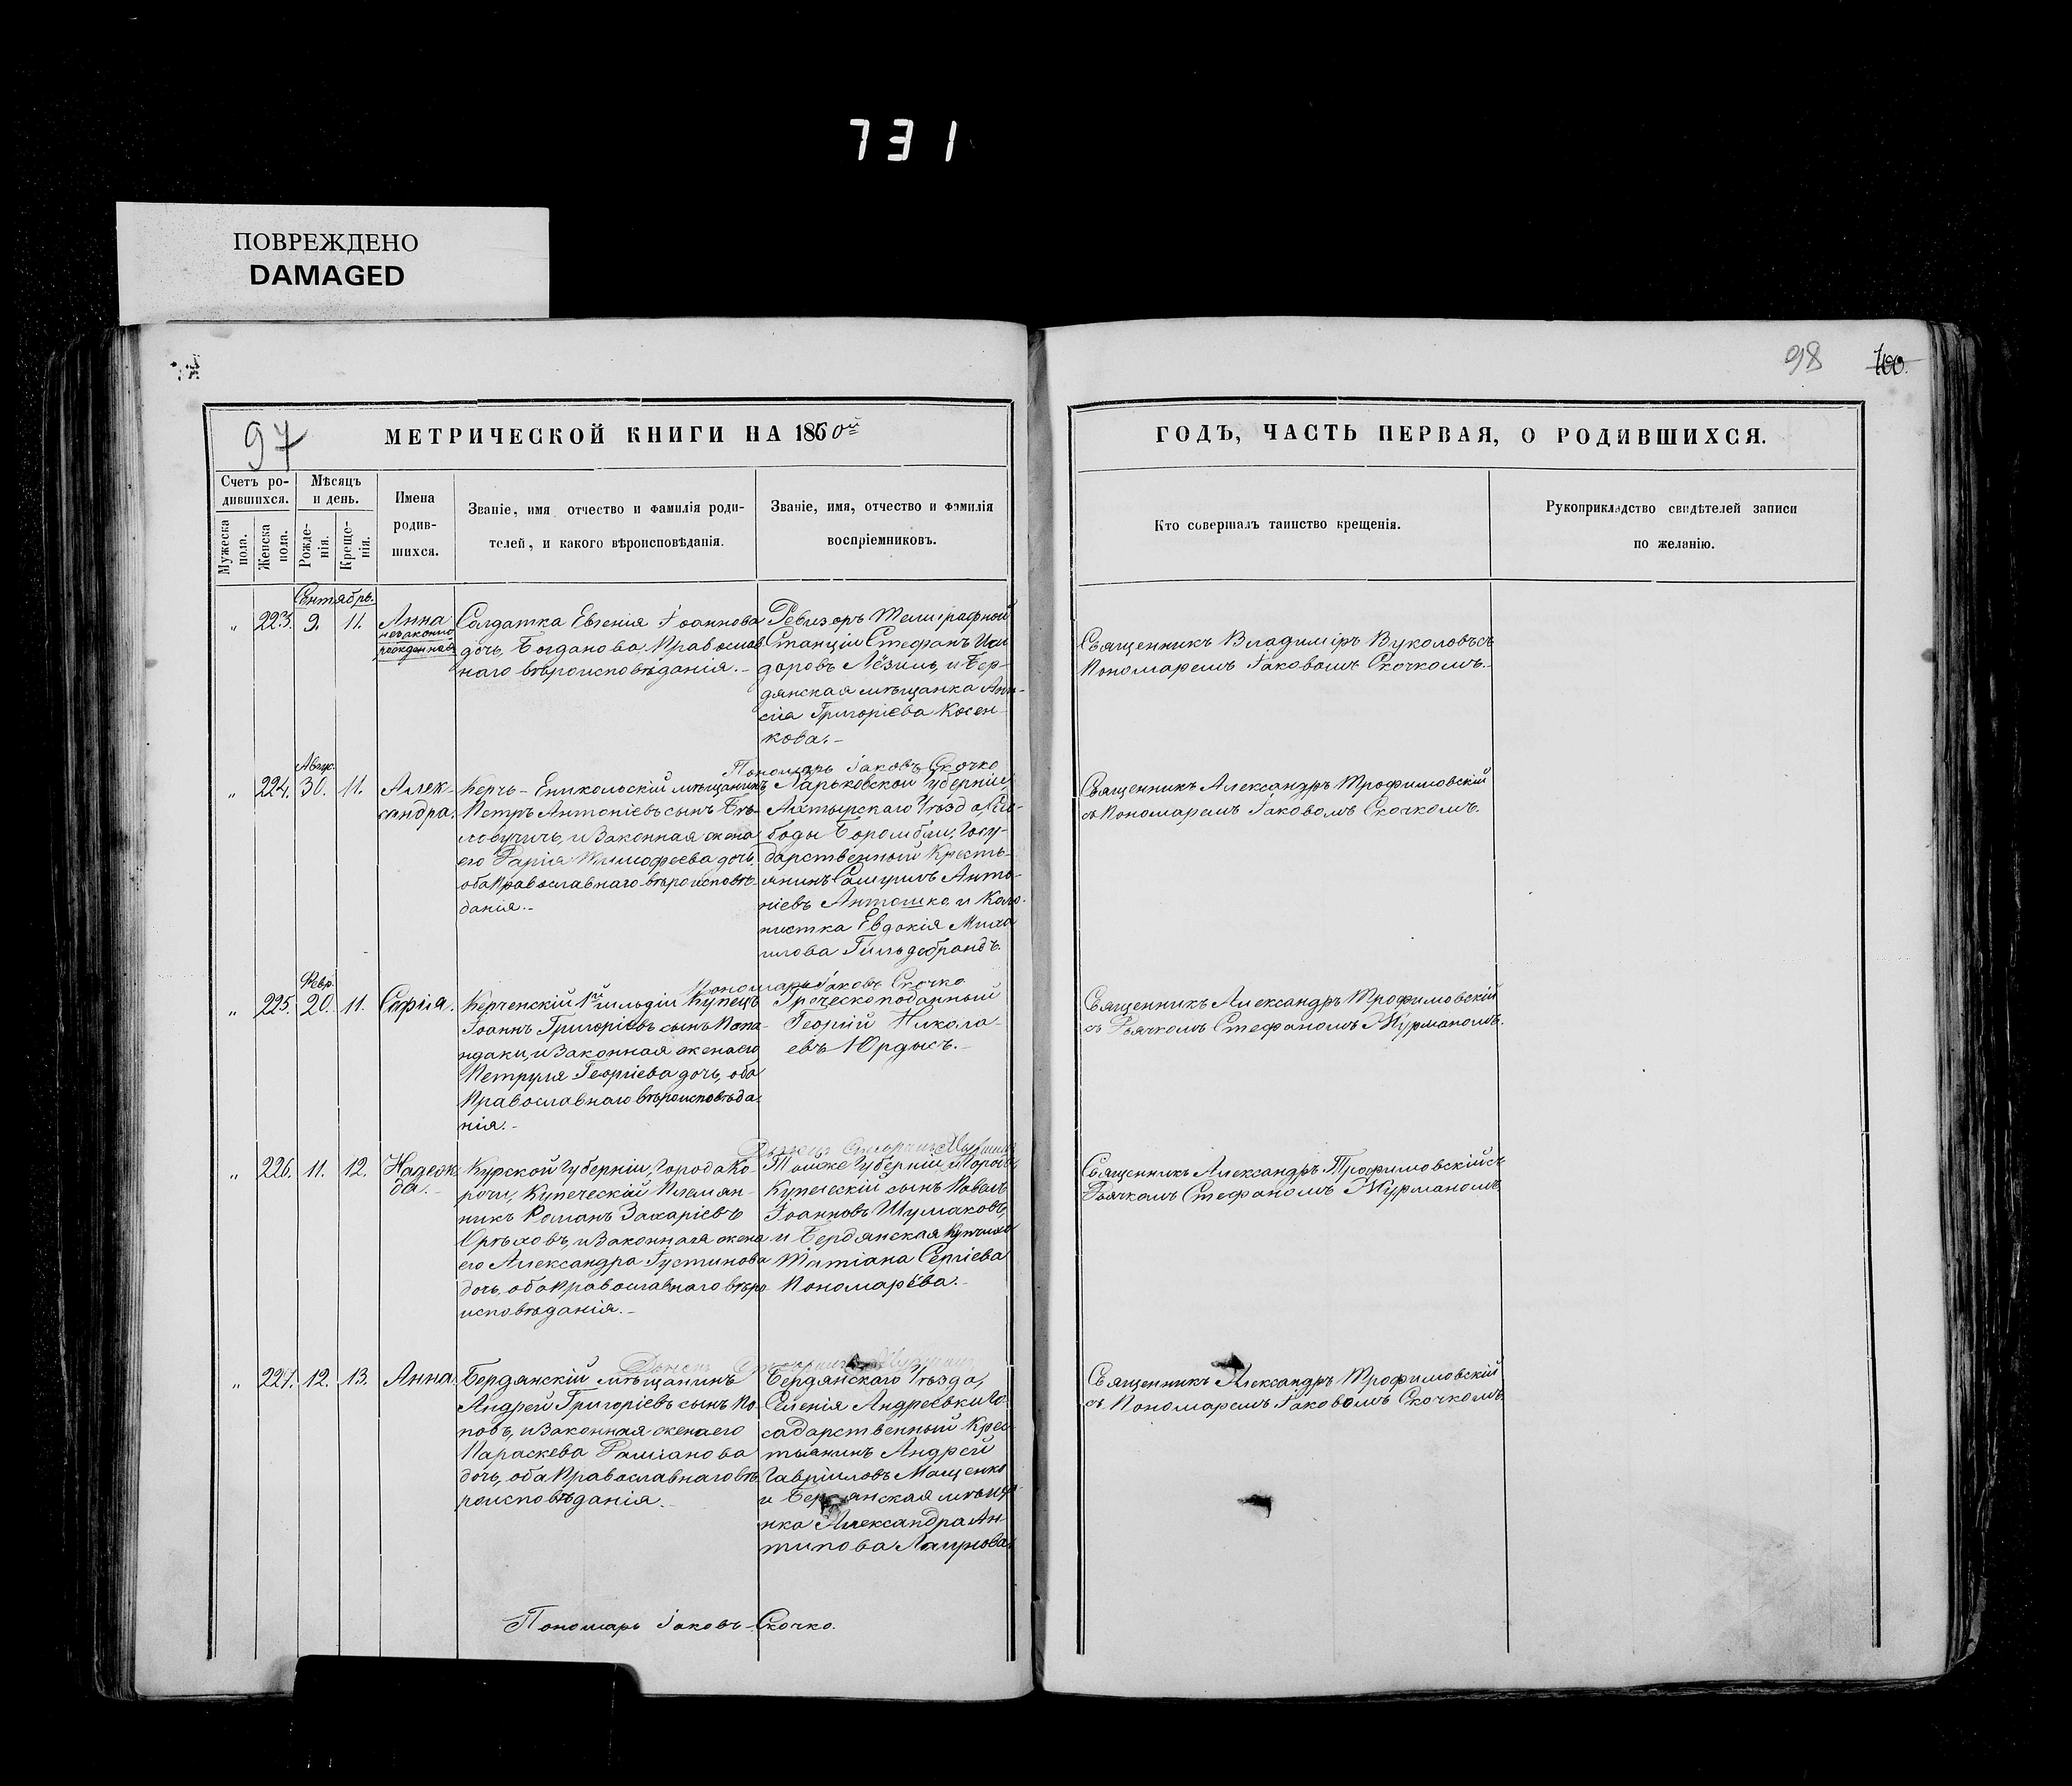 731
ПОВРЕЖДЕНО
DAMAGED
98 100.
97
МЕТРИЧЕСКОЙ КНИГИ НА 1860ой
ГОДЪ, ЧАСТЬ ПЕРВАЯ, О РОДИВШИХСЯ.
Счетъ ро-
дившихся.
Мужеска пола.
Женска пола.
Мѣсяцъ
и день.
Рожде-
нія.
Креще-
нія.
Имена
родив-
шихся.
Званіе, имя отчество и фамилія роди-
телей, и какого вѣроисповѣданія.
Званіе, имя, отчество и фамилія
воспріемниковъ.
Кто совершалъ таинство крещенія.
Рукоприкладство свидѣтелей записи
по желанію.
Сентябрь.
„ 223. 9. 11.
Анна
незаконно
рожденная
Солдатка Евгенія Іоаннова
дочь, Богданова, Православ
наго вѣроисповѣданія.-
Ревизоръ Телиграфной
Станціи Стефанъ Иси
доровъ Лёзинъ, и Бер-
дянская мѣщанка
Григоріева Косен-
кова.-
Священникъ Владиміръ Вуколовъ съ
Пономаремъ Іаковомъ Скочкомъ.-
Пономарь Іаковъ Скочко
Авгус.
„ 224. 30. 11.
Алек-
сандра.
Керчь-Еникольскій мѣщанинъ
Петръ Антоніевъ сынъ Бѣ-
ловучичъ, и Законная жена
его Дарія Тимофеева дочь,
оба Православнаго вѣроисповѣ-
данія.-
Харьковской Губерніи,
Ахтырскаго Уѣзда, Сло-
боды Боромбли, Госу-
дарственный Кресть-
янинъ Самуилъ Анто-
ніевъ Антошко, и Коло-
нистка Евдокія Миха
илова Гильдебрандъ.
Священникъ Александръ Трофимовскій
съ Пономаремъ Іаковомъ Скочкомъ.
Пономарь Іаковъ Скочко
Февр.
„ 225. 20. 11.
Софія.
Керченскій 1й гильдіи Купецъ
Іоаннъ Григоріевъ сынъ Попа-
ндаки, и Законная жена его
Петруля Георгіева дочь, оба
Православнаго вѣроисповѣда
нія.-
Греческоподанный
Георгій Никола-
евъ Юрдысъ.-
Священникъ Александръ Трофимовскій
съ Дьячкомъ Стефаномъ Журманомъ.
„ 226. 11. 12.
Надеж
да.-
Курской Губерніи, Города Ко-
рочи, Купеческій Племян-
никъ Романъ Захаріевъ
Орѣховъ, и Законная жена
его Александра Іустинова
дочь, оба Православнаго вѣро
исповѣданія.-
Тойже Губерніи и Города
Купеческій сынъ Павелъ
Іоанновъ Шумаковъ,
и Бердянская Купчиха
Татіана Сергіева
Пономарёва.-
Священникъ Александръ Трофимовскій съ
Дьячкомъ Стефаномъ Журманомъ.
„ 227. 12. 13.
Анна.
Бердянскій мѣщанинъ
Андрей Григоріевъ сынъ По-
повъ, и Законная жена его
Параскева Даміанова
дочь, оба Православнаго вѣ-
роисповѣданія.-
Бердянскаго Уѣзда,
Селенія Андреевки Го-
сударственный Крес
тьянинъ Андрей
Гавріиловъ Мащенко
и Бердянская мѣща
нка Александра Ан
типова
Священникъ Александръ Трофимовскій
съ Пономаремъ Іаковомъ Скочкомъ.
Пономарь Іаковъ Скочко.